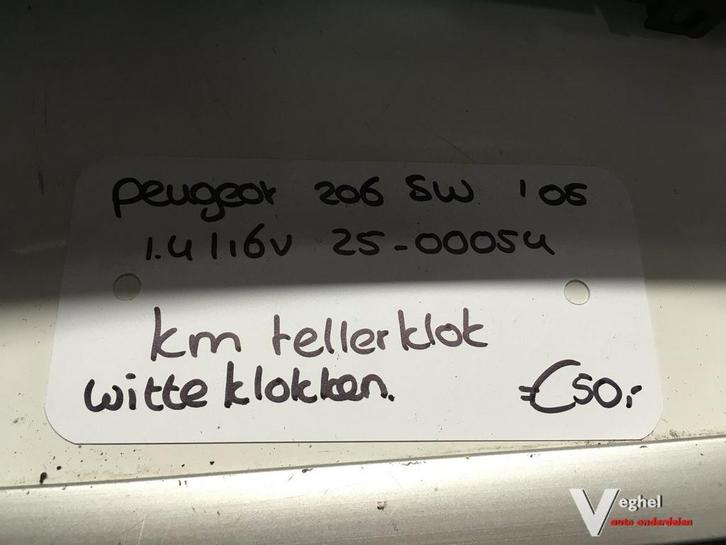 Peugeot 206 SW '05
1.4 I 16V 25-00054
km tellerklok
witte klokken. €50,-
Veghel
auto onderdelen